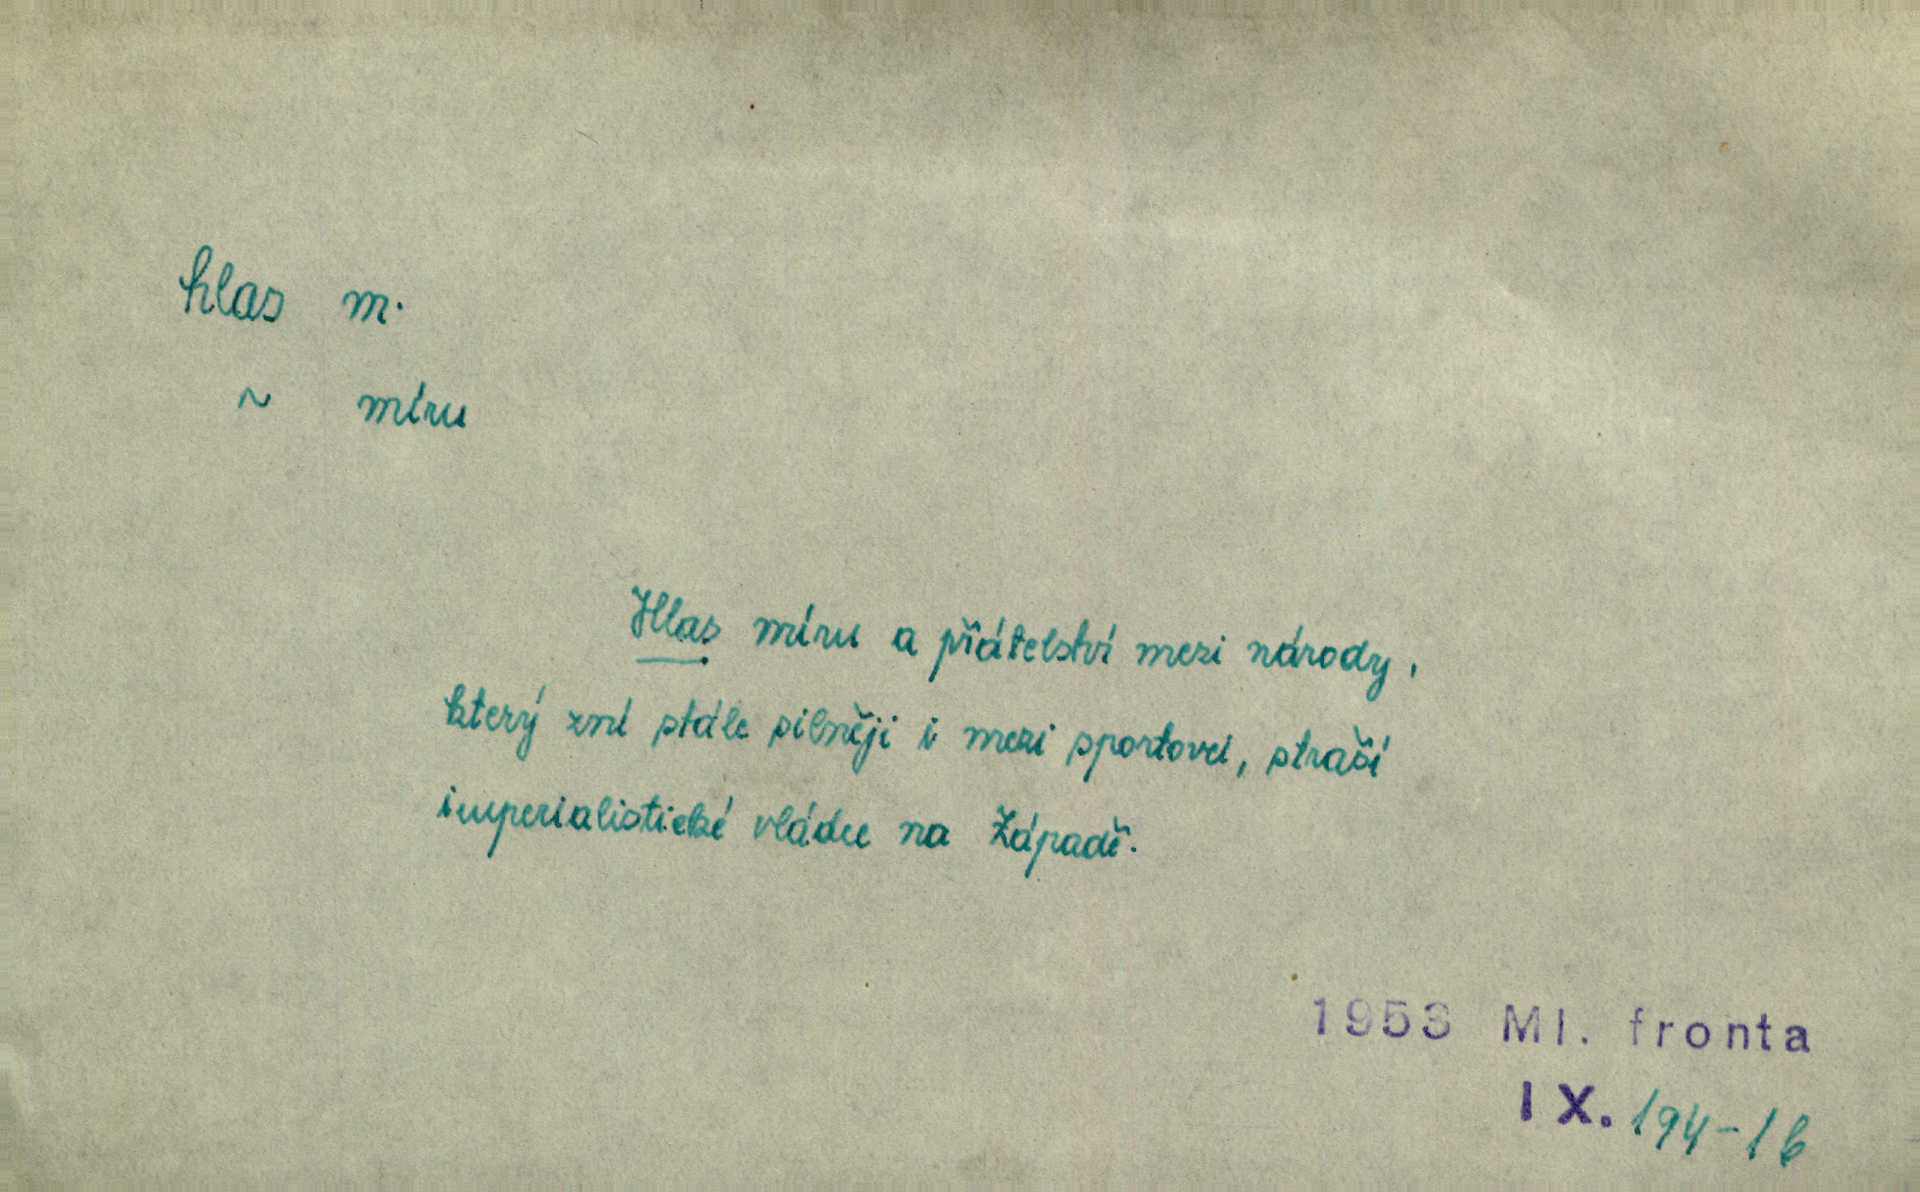 hlas m.
~ míru
Hlas míru a přátelství mezi národy,
který zní stále silněji i mezi sportovci, straší
imperialistické vládce na Západě.
1953 Ml. fronta
IX. 194-1b